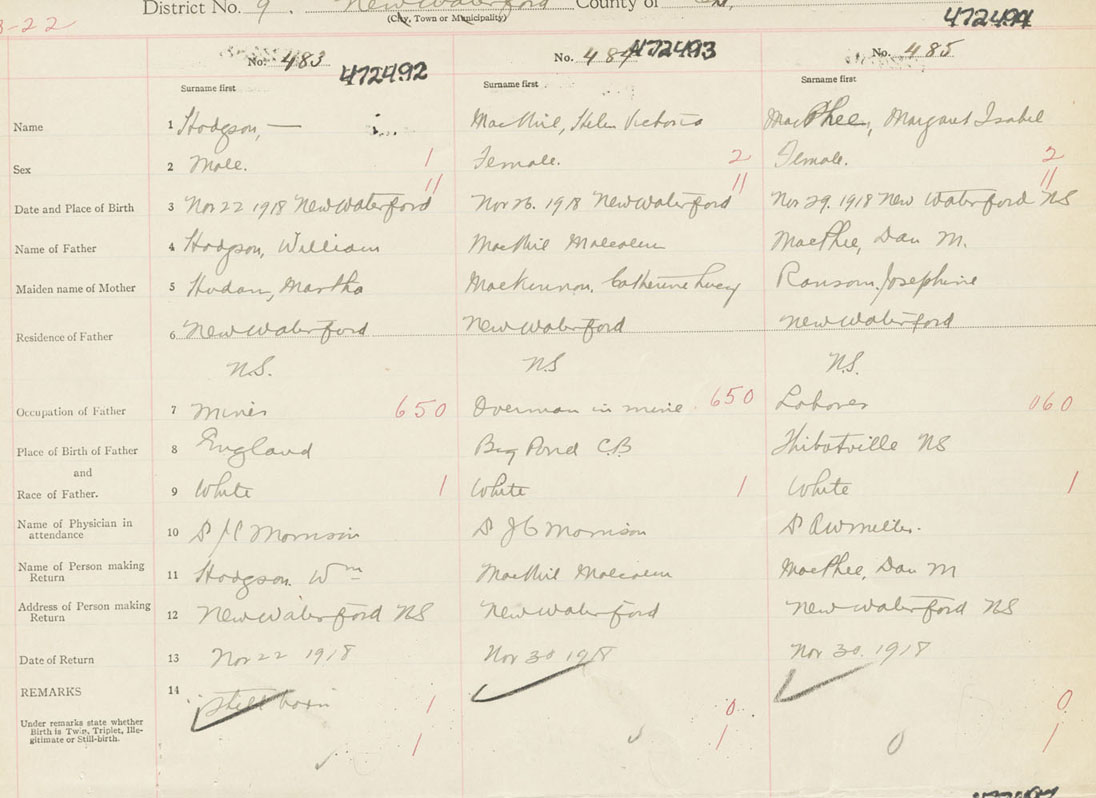 District No. 9. New Waterford County of C.B.
(City, Town or Municipality)
-22
472494
No. 483 472492
No. 484 472493
No. 485
Surname first Surname first Surname first
Name 1 Hodgson, — MacNeil, Helen Victoria MacPhee, Margaret Isabel
Sex 2 Male. 1 Female. 2 Female. 2
11 11 11
Date and Place of Birth 3 Nov 22 1918 New Waterford Nov 26. 1918 New Waterford Nov 29. 1918 New Waterford NS
Name of Father 4 Hodgson, William MacNeil Malcolm MacPhee, Dan M.
Maiden name of Mother 5 Hudan, Martha MacKinnon, Catherine Lucy Ransom, Josephine
Residence of Father 6 New Waterford New Waterford New Waterford
N.S. NS N.S.
Occupation of Father 7 Miner 650 Overman in mine. 650 Laborer 060
Place of Birth of Father 8 England Big Pond C.B Thibotville NS
and
Race of Father. 9 White 1 White 1 White 1
Name of Physician in
attendance 10 Dr J C Morrison Dr J C Morrison Dr A W Miller.
Name of Person making
Return 11 Hodgson. Wm MacNeil Malcolm MacPhee, Dan M
Address of Person making
Return 12 New Waterford NS New Waterford New Waterford NS
Date of Return 13 Nov 22 1918 Nov 30 1918 Nov 30. 1918
REMARKS 14 Still born 1 0 0
Under remarks state whether
Birth is Twin, Triplet, Ille-
gitimate or Still-birth.
1 1 0 1